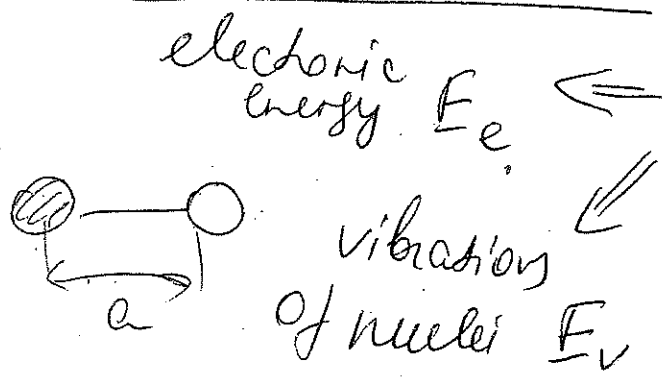 electronic
energy E_e
a
vibrations
of nuclei E_v